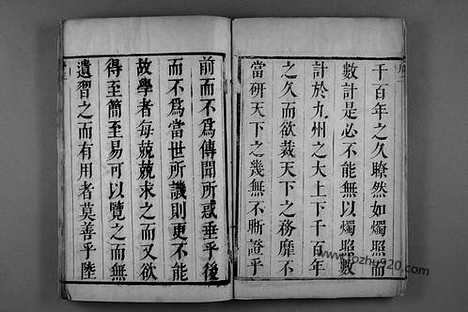 千百年之久瞭然如燭照而
數計是必不能無以燭照數
計於九州之大上下千百年
之久而欲裁天下之務靡不
當研天下之幾無不晰證乎
前而不爲傳聞所惑垂乎後
而不爲當世所譏則更不能
故學者每兢兢求之而又欲
得至簡至易可以覽之而無
遺習之而有用者莫善乎陸